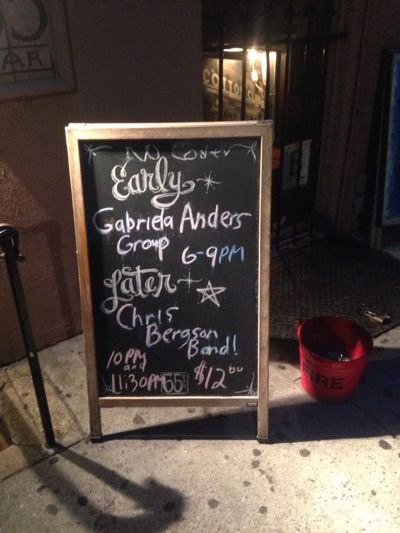 BAR
No Cover
Early
Gabriela Anders
Group 6-9PM
Later
Chris
Bergson
Band!
10PM
and
11:30PM 55 $12
FIRE